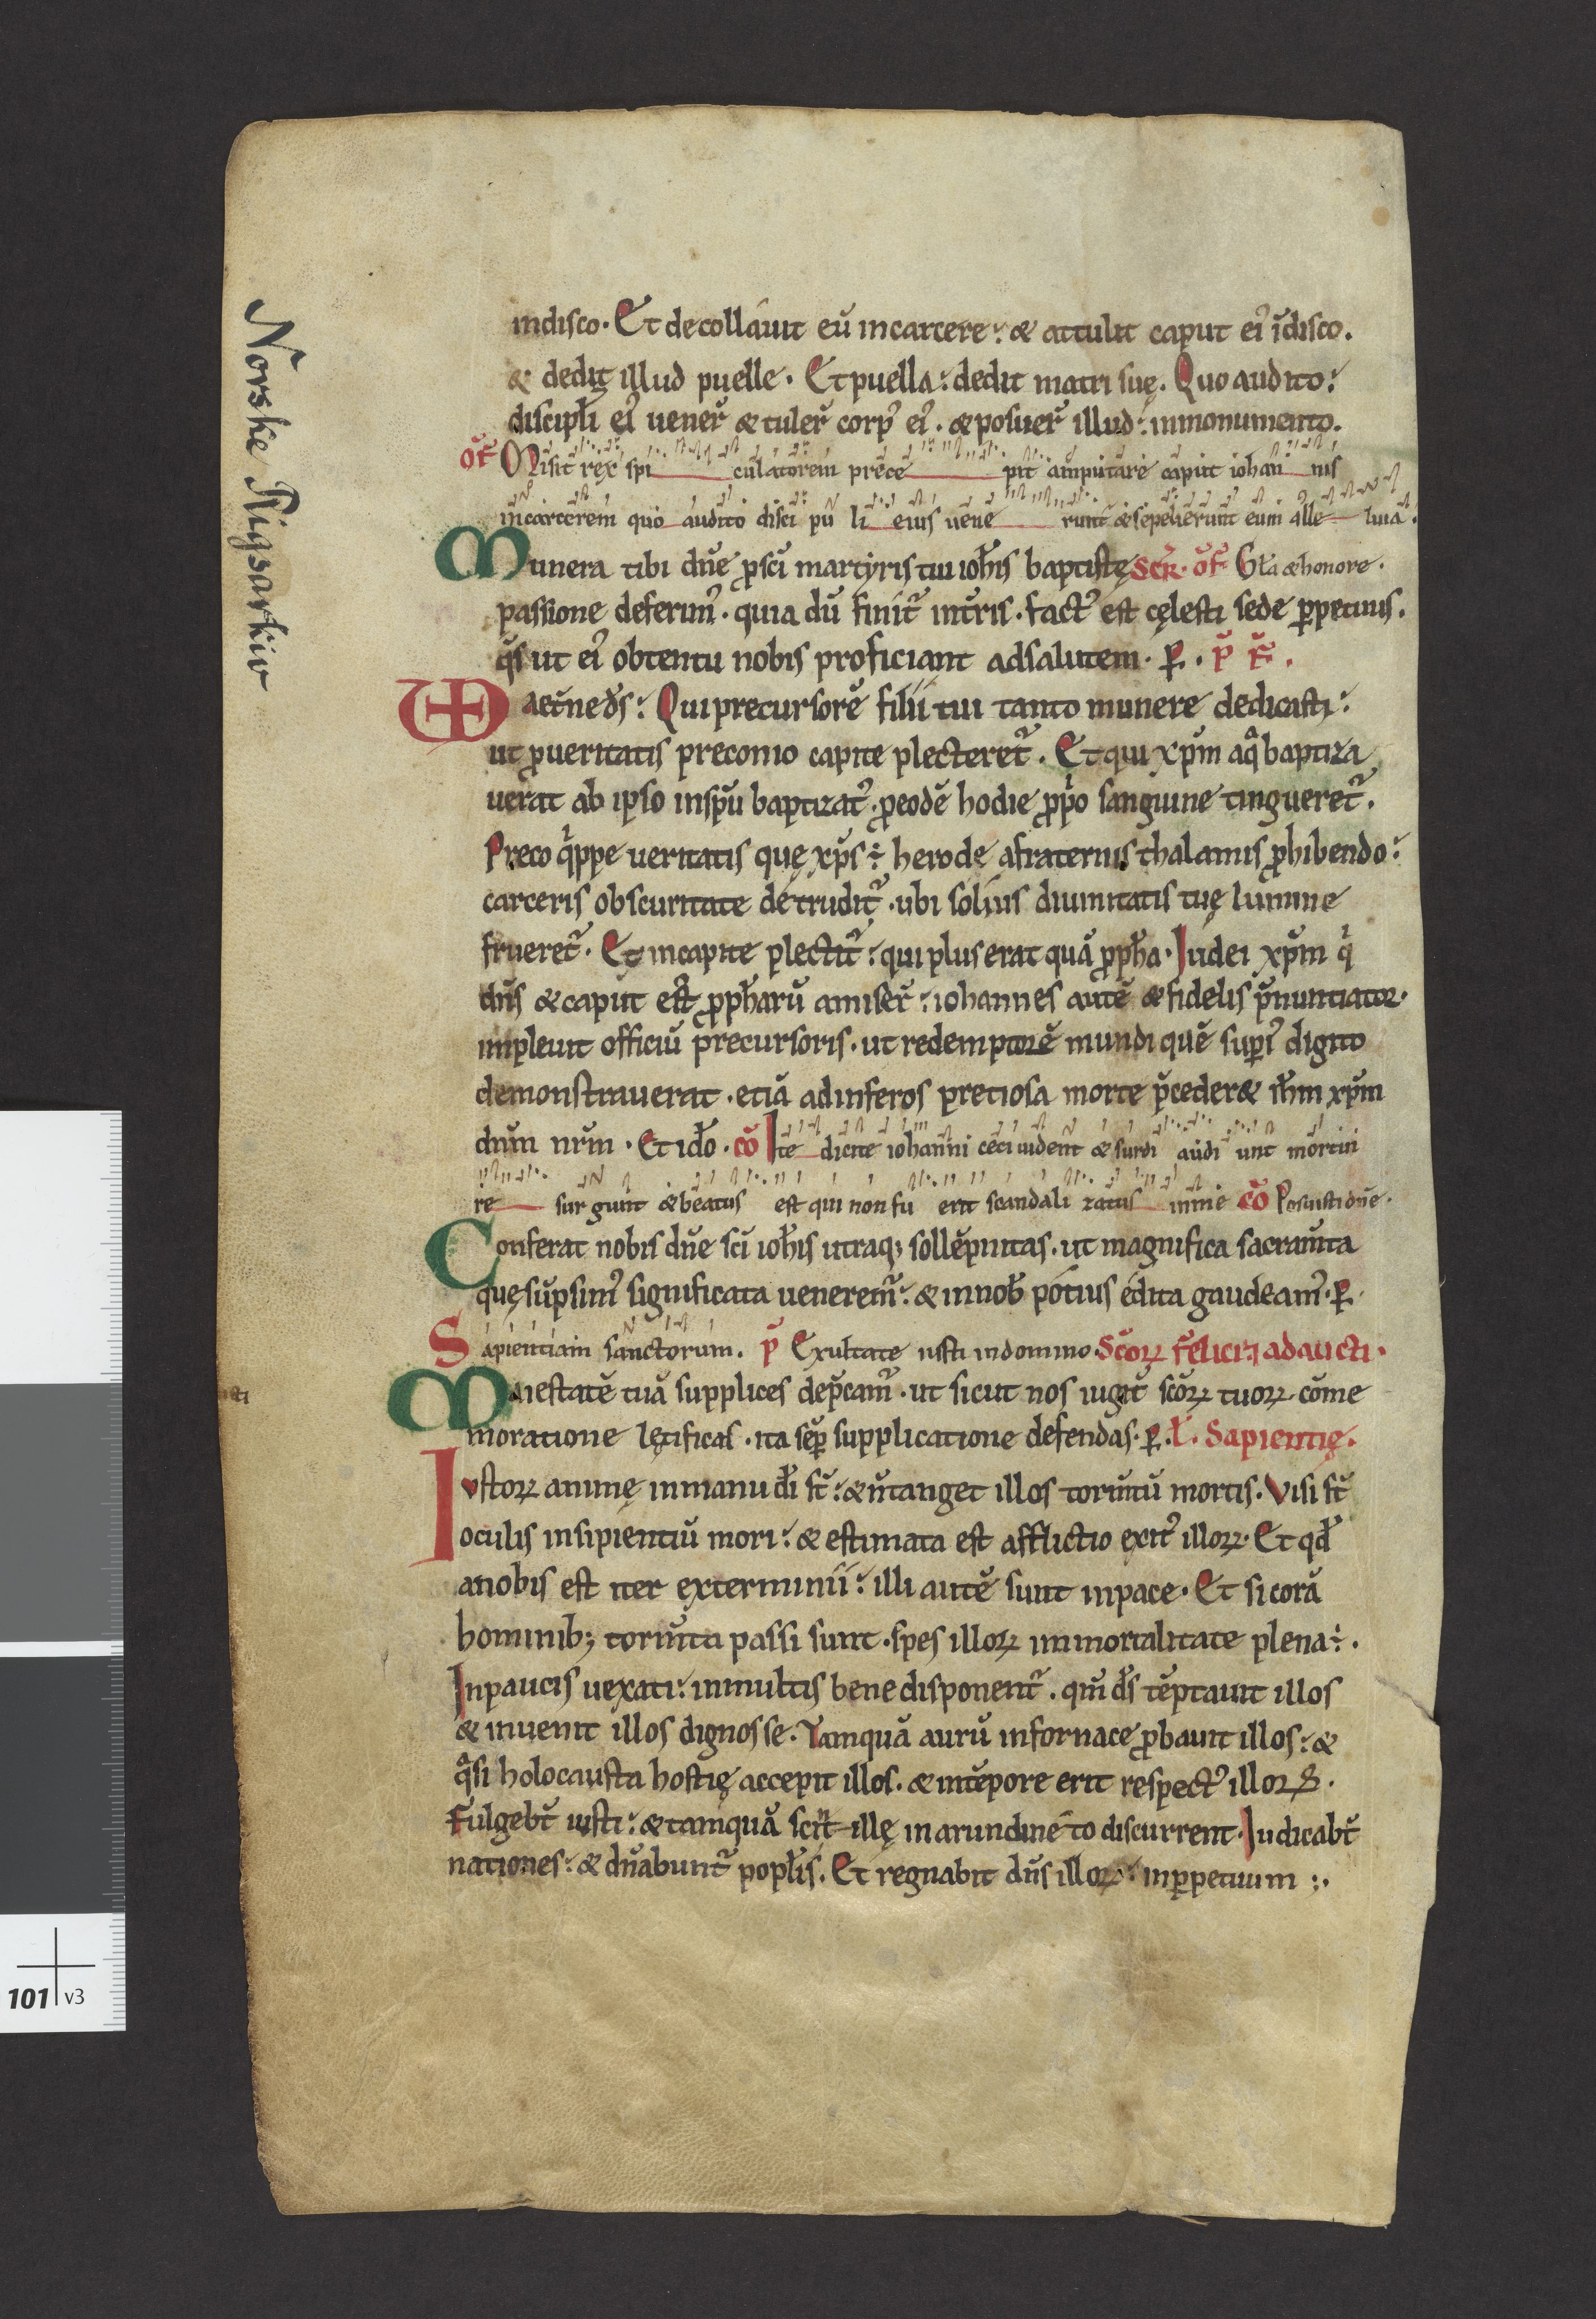 indisco. Et decollauit eū incarcere: & attulit caput ei᾿ īdisco.
& dedit illud puelle. Et puella: dedit matri suę. Quo audito:
discipłi ei᾿ uener̄ & tuler̄ corp᾿ ei᾿. & posuer̄ illud: inmonumento.
OF Misit rex spi culatorem prece pit amputare caput iohan nis
incarcerem quo audito disci pu li eius uene runt & sepelierunt eum alle luia.
Munera tibi dn̄e ꝓ sc̄i martyris tui ioh̄is baptistę SCR. OF Gła & honore.
passione deferim᾿. quia dū finit᾿ int̄ris. fact᾿ est cęlesti sede ꝑpetuus.
q̄s ut ei᾿ obtentu nobis proficiant adsalutem. ꝑ. p̄ f̄.
VD aet̄ne d̄s: Qui precursorē filii tui tanto munere dedicasti:
ut ꝓueritatis preconio capite plecteret᾿. Et qui xp̄m aq̄ baptiza
uerat ab ipso insp̄u baptizat᾿. ꝓeodē hodie ꝓp̄o sanguine tingueret᾿.
Preco q̄ppe ueritatis quę xp̄s ÷ herodę afraternis thalamis ꝓhibendo:
carceris obscuritate detrudit᾿. ubi solius diuinitatis tuę lumine
frueret᾿. Et incapite plectit᾿: qui plus erat quā ꝓph̄a. Iudei xp̄m q̄
dn̄s & caput est ꝓph̄arū amiser̄: iohannes autē & fidelis p̄nuntiator.
impleuit officiū precursoris. ut redemptorē mundi quē sup̄i᾿ digito
demonstrauerat. etiā adinferos pretiosa morte p̄ceder& ih̄m xp̄m
dn̄m nr̄m. Et id̄o. CŌ Ite dicite iohanni ceci uident & surdi audi unt mortui
re sur gunt & beatus est qui non fu erit scandali zatus inme CŌ Posuisti dn̄e.
Conferat nobis dn̄e sc̄i ioh̄is utraq; sollēpnitas. ut magnifica sacram̄ta
quę sūpsim᾿ significata uenerem᾿: & innob̄ potius edita gaudeam᾿. ꝑ.
Sapientiam sanctorum. p̄ Exultate iusti indomino. Scōꝝ felicis ⁊ adaucti.
Maiestatē tuā supplices dep̄cam᾿. ut sicut nos iugit᾿ scōꝝ tuoꝝ cōme
moratione lętificas. ita sēꝑ supplicatione defendas. ꝑ. Ł. Sapientię.
Iustoꝝ animę inmanu d̄i st̄: & n̄ tanget illos torm̄tū mortis. Visi st̄
oculis insipientiū mori: & estimata est afflictio exit᾿ illoꝝ. Et qd̄
anobis est iter exterminii: illi autē sunt inpace. Et si corā
hominib; torm̄ta passi sunt. spes illoꝝ immortalitate plena ÷.
Inpaucis uexati: inmultis bene disponent᾿. qm̄ d̄s tēptauit illos
& inuenit illos dignos se. Tamquā aurū infornace ꝓbauit illos: &
q̄si holocausta hostię accepit illos. & intēpore erit respect᾿ illoꝝ.
Fulgebt̄ iusti: & tamquā scintillę inarundineto discurrent. Iudicabt̄
nationes: & dn̄abunt᾿ popłis. Et regnabit dn̄s illoꝝ: inꝑpetuum :.
Norske Rigsarkiv
101 v3